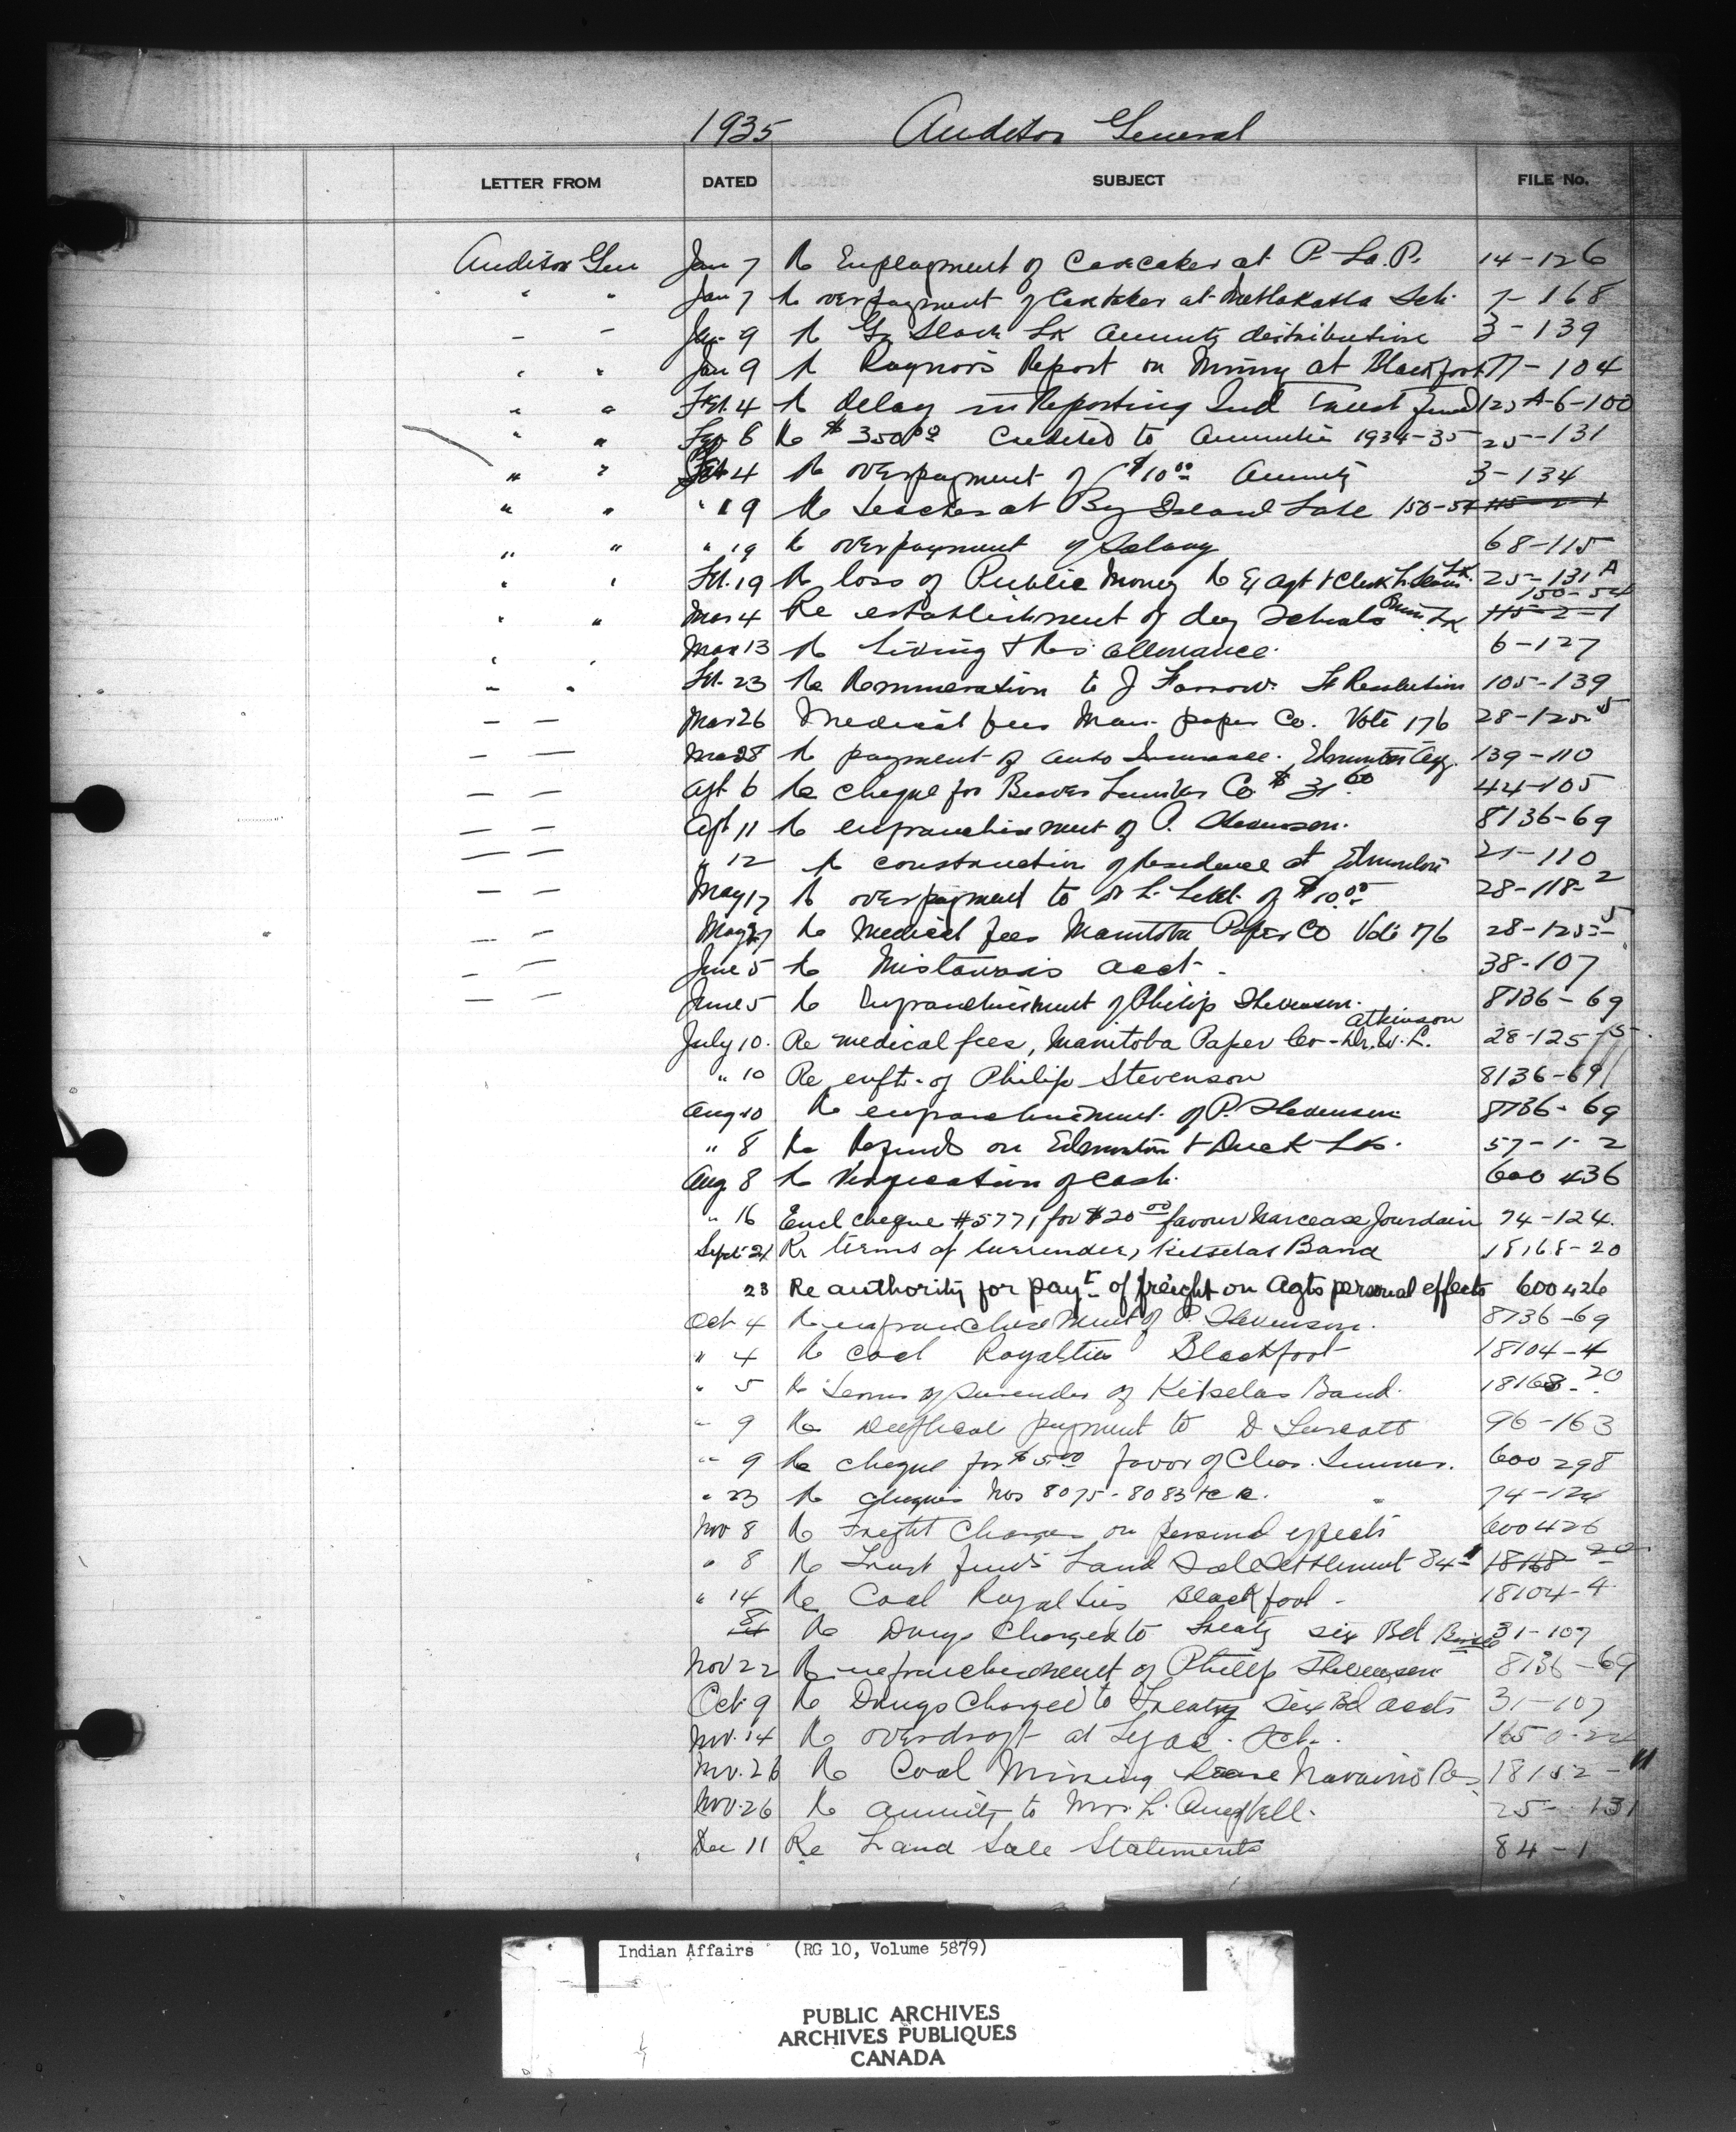 1935 Auditor General
LETTER FROM DATED SUBJECT FILE No.
Auditor Gen Jan 7 Re Employment of Caretaker at P. La. P. 14-126
" " Jan 7 Re overpayment of Caretaker at Metlakatla Sch. 7-168
- - Jan 9 Re Gr Slave Lk Annuity distribution 3-139
" " Jan 9 Re Raynor's Report on Mining at Blackfoot 77-104
" " Feb. 4 Re delay in Reporting Ind Trust Fund 125 A-6-100
" " Feb 6 Re $350.00 Credited to Annuities 1934-35 25-131
" " Feb 4 Re overpayment of $10.00 Annuity 3-134
" " " 19 Re teacher at Big Island Lake 150-54
" " " 19 Re overpayment of Salary 68-115
" " Feb. 19 Re loss of Public Money Re Ex Agt & Clerk 25-131 A
150-54
" " Mar 4 Re establishment of day schools 115-2-1
" " Mar 13 Re Living allowance. 6-127
" " Feb. 23 Re Remuneration to J Farrow. Ft Resolution 105-139
- - Mar 26 Medical fees Man. paper Co. Vote 176 28-125-5
- - Mar 28 Re payment of auto Insurance. Edmonton Agy. 139-110
- - Apl 6 Re Cheque for Beaver Lumber Co $31.60 44-105
- - Apl 11 Re enfranchisement of P. Stevenson. 8136-69
- - " 12 Re construction of residence at Edmonton 21-110
- - May 17 Re overpayment to of $10.00 28-118-2
- - May 27 Re Medical fees Manitoba Paper Co Vote 176 28-125-5
- - June 5 Re Mistawasis acct. 38-107
- - June 5 Re Enfranchisement of Philip Stevenson. 8136-69
Atkinson
July 10. Re medical fees, Manitoba Paper Co-Dr. W. L. 28-125-5.
" 10 Re enft. of Philip Stevenson 8136-69
Aug 10 Re enfranchisement of P. Stevenson 8136-69
" 8 Re Refunds on Edmonton & Duck Lk. 57-1-2
Aug. 8 Re Verification of Cash. 600 436
" 16 Encl cheque #5771 for $20.00 favour Narcease Jourdain 74-124.
Sept 21 Re terms of surrender, Kitselas Band 18168-20
23 Re authority for payt. of freight on Agts personal effects 600426
Oct 4 Re enfranchisement of P. Stevenson. 8136-69
" 4 Re Coal Royalties Blackfoot 18104-4
" 5 Re Terms of Surrender of Kitselas Band. 18168-20
" 9 Re Duplicate payment to D 96-163
" 9 Re cheque for $5.00 favor of Chas. 600 298
" 23 Re cheques Nos 8075-8083 74-124
Nov 8 Re Freight Charges on personal effects 600426
" 8 Re Trust funds Land Sale Settlement 84-1 18168-20
" 14 Re Coal Royalties Blackfoot 18104-4
8 Re Drugs Charged to Treaty six Bd 31-107
Nov 22 Re enfranchisement of Philip Stevenson 8136-69
Oct. 9 Re Drugs Charged to Treaty Six Bd accts 31-107
Nov. 14 Re overdraft at Sch.
Nov. 26 Re Coal Mining Lease Nanaimo Res 18152-11
Nov. 26 Re annuity to Mrs. L. Campbell. 25-131
Dec 11 Re Land Sale Statements 84-1
Indian Affairs (RG 10, Volume 5879)
PUBLIC ARCHIVES
ARCHIVES PUBLIQUES
CANADA